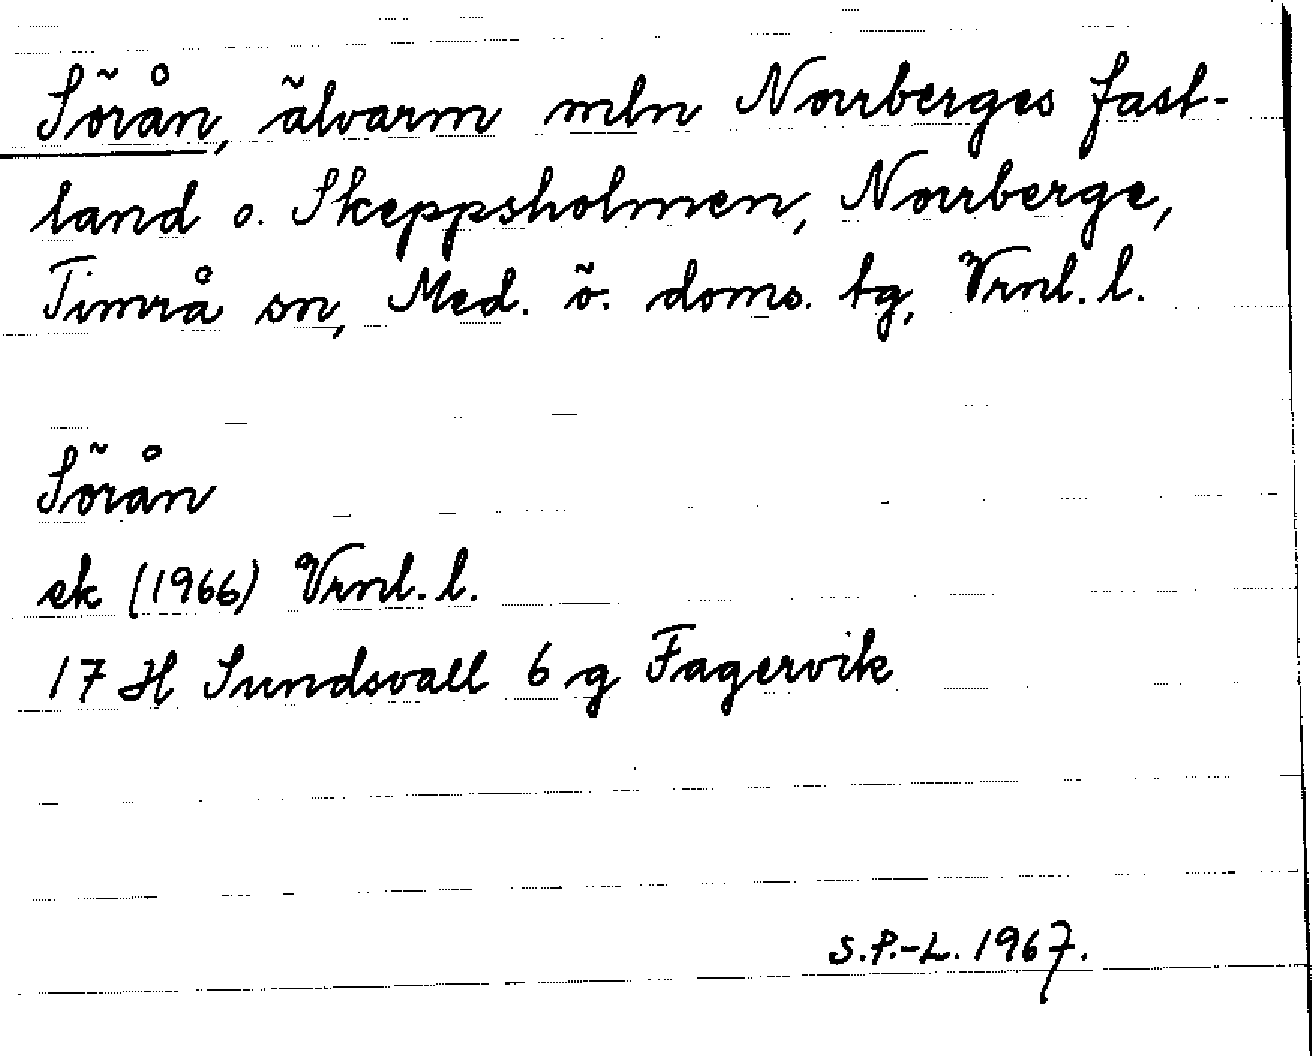 Sörån, älvarm mln Norrberges fast-
land o. Skeppsholmen, Norrberge,
Timrå sn, Med. ö. doms. tg, Vrnl. l.
Sörån
ek (1966) Vrnl. l.
17 H Sundsvall 6 g Fagervik
S.P.-L. 1967.